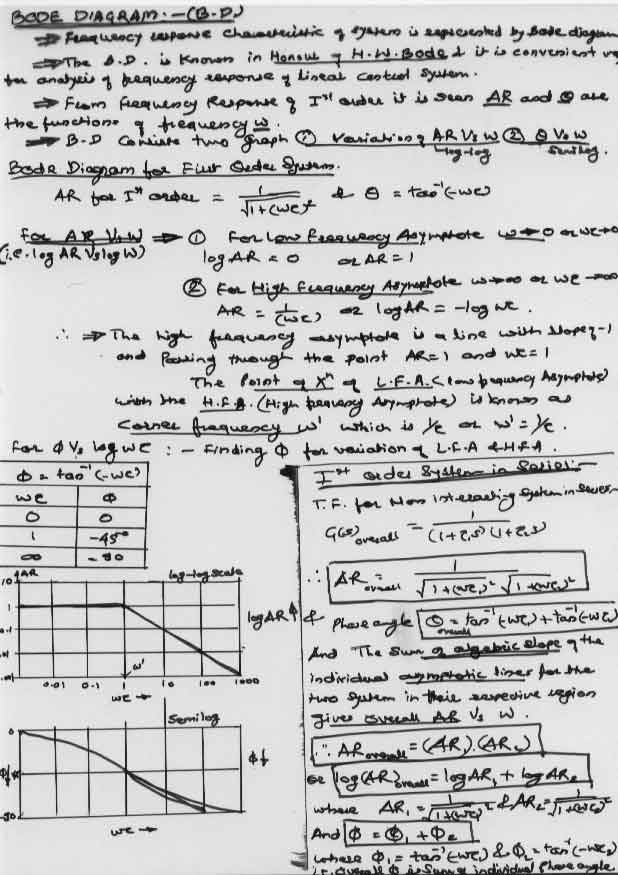 BODE DIAGRAM :- (B.D)
⇒ Frequency response characteristic of system is represented by Bode diagram
⇒ The B.D. is Known in Honour of H.W. Bode & it is convenient
for analysis of frequency response of lineal control system.
⇒ From Frequency Response of Ist order it is seen AR and θ are
the functions of frequency w.
⇒ B-D Consists two graph ① Variation of AR Vs w ② θ Vs w
log-log Semilog.
Bode Diagram for First Order System.
AR for Ist order = 1/√1+(wτ)² & θ = tan⁻¹(-wτ)
For AR Vs W ⇒ ① For Low Frequency Asymptote w→0 or wτ→0
(i.e. log AR Vs log W) log AR = 0 or AR = 1
② For High Frequency Asymptote w→∞ or wτ→∞
AR = 1/(wτ) or log AR = -log wτ.
∴ ⇒ The high frequency asymptote is a line with slope -1
and Passing through the point AR=1 and wτ=1
The Point of Xⁿ of L.F.A. (low frequency Asymptote)
with the H.F.A. (High frequency Asymptote) is known as
Corner frequency w' which is 1/τ or w' = 1/τ.
For Φ Vs log wτ :- Finding Φ for variation of L.F.A & H.F.A.
Φ = tan⁻¹(-wτ)
wτ Φ
0 0
1 -45°
∞ -90
AR log-log scale
10
1
.1
.01
0.01 0.1 1 10 100 1000
w'
wτ →
log AR ↑
Semilog
0
Φ↓
-90
wτ →
Φ↓
Ist Order System in Series:-
T.F. for Non Interacting System in Series-
G(s) overall = 1/(1+τ₁s)(1+τ₂s)
∴ AR overall = 1/√1+(wτ₁)² √1+(wτ₂)²
& Phase angle θ overall = tan⁻¹(-wτ₁) + tan⁻¹(-wτ₂)
And "The Sum of algebric slope of the
individual asymptotic lines for the
two System in their respective region
gives overall AR Vs W.
∴ AR overall = (AR₁).(AR₂)
or log(AR) overall = log AR₁ + log AR₂
where AR₁ = 1/√1+(wτ₁)² & AR₂ = 1/√1+(wτ₂)²
And Φ = Φ₁ + Φ₂
where Φ₁ = tan⁻¹(-wτ₁) & Φ₂ = tan⁻¹(-wτ₂)
i.e. overall Φ is Sum of individual Phase angle